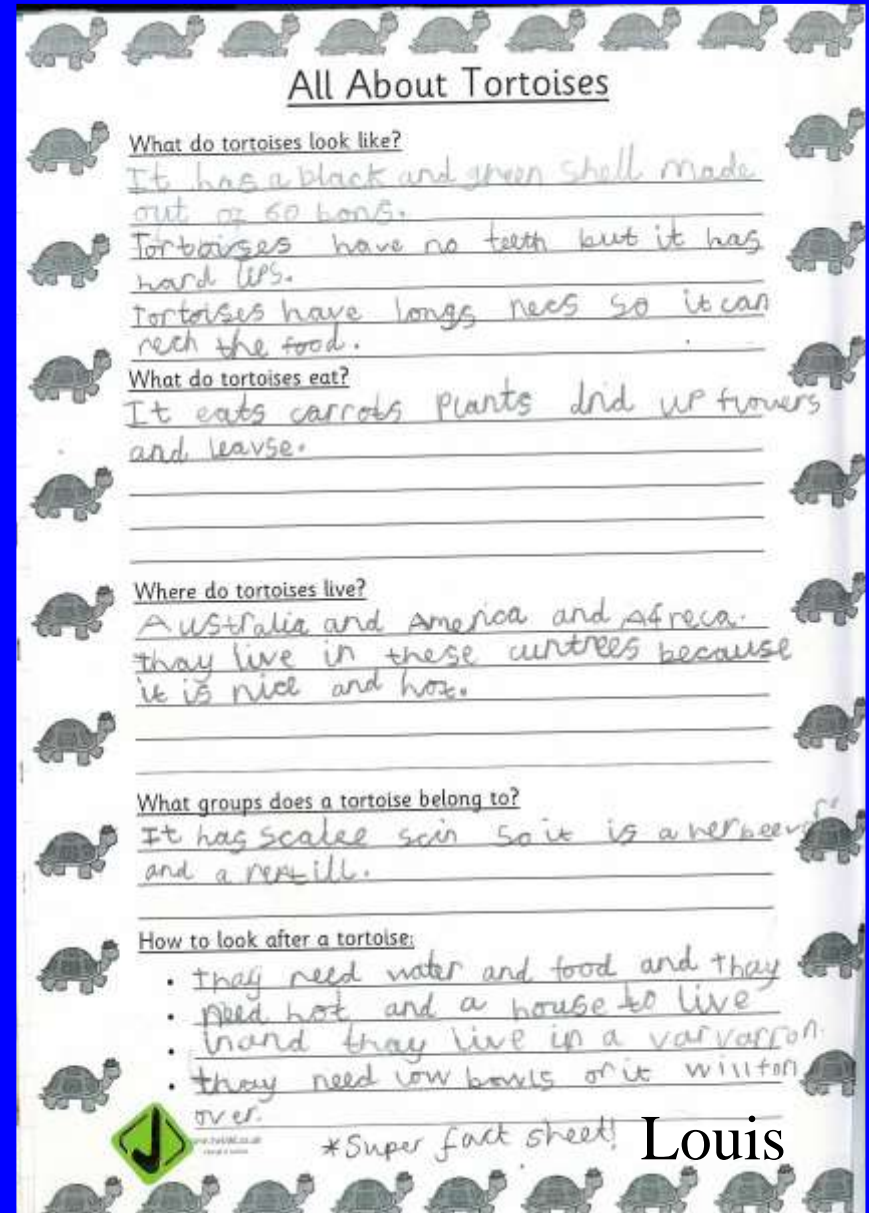 All About Tortoises
What do tortoises look like?
It has a black and green shell made
out oz 60 bons.
Tortoises have no teeth but it has
hard lips.
Tortoises have longs necs so it can
rech the food.
What do tortoises eat?
It eats carrots plants drid up flowers
and leavse.
Where do tortoises live?
Australia and America and Afreca.
thay live in these cuntrees because
it is nice and hot.
What groups does a tortoise belong to?
It has scalee scin so it is a
and a reptill.
How to look after a tortoise:
• thay need water and food and thay
• need hot and a house to live
• inand thay live in a varvarron.
• thay need low bowls or it will
over.
*Super fact sheet!
Louis